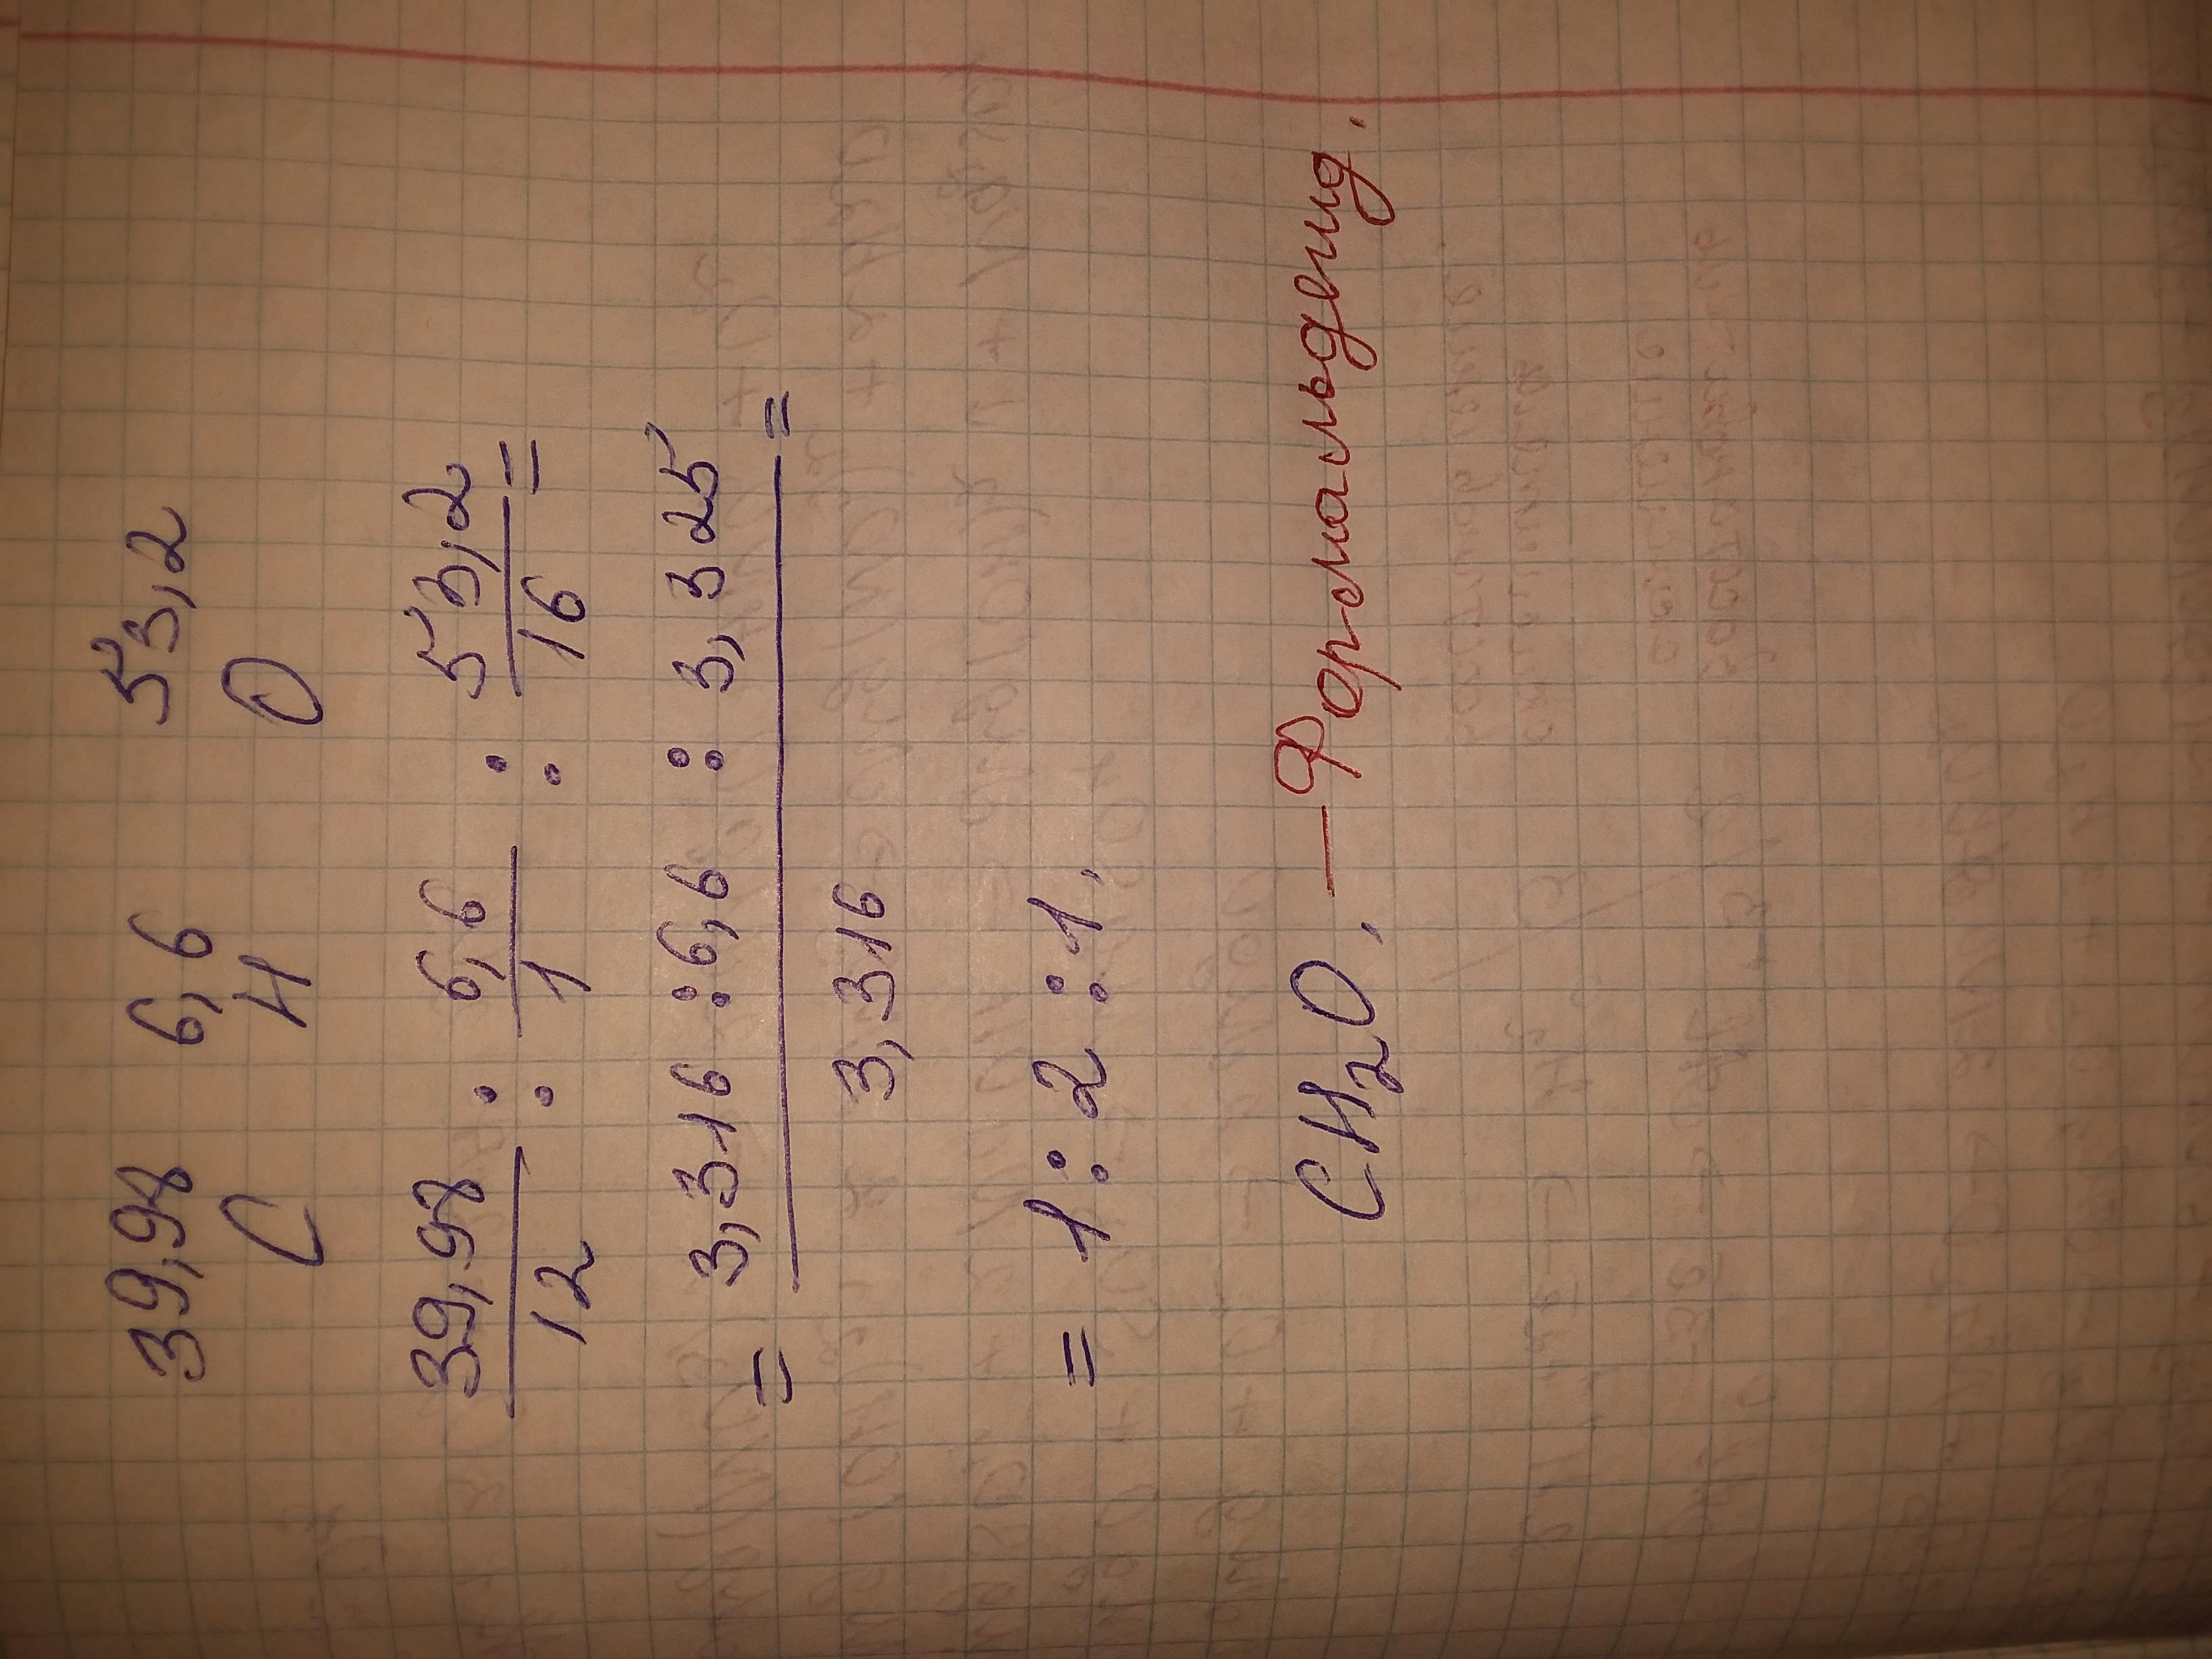 39,98 6,6 53,2
C H O
39,98/12 : 6,6/1 : 53,2/16 =
= 3,316 : 6,6 : 3,325 / 3,316 =
= 1 : 2 : 1,
CH₂O, — Формальдегид.